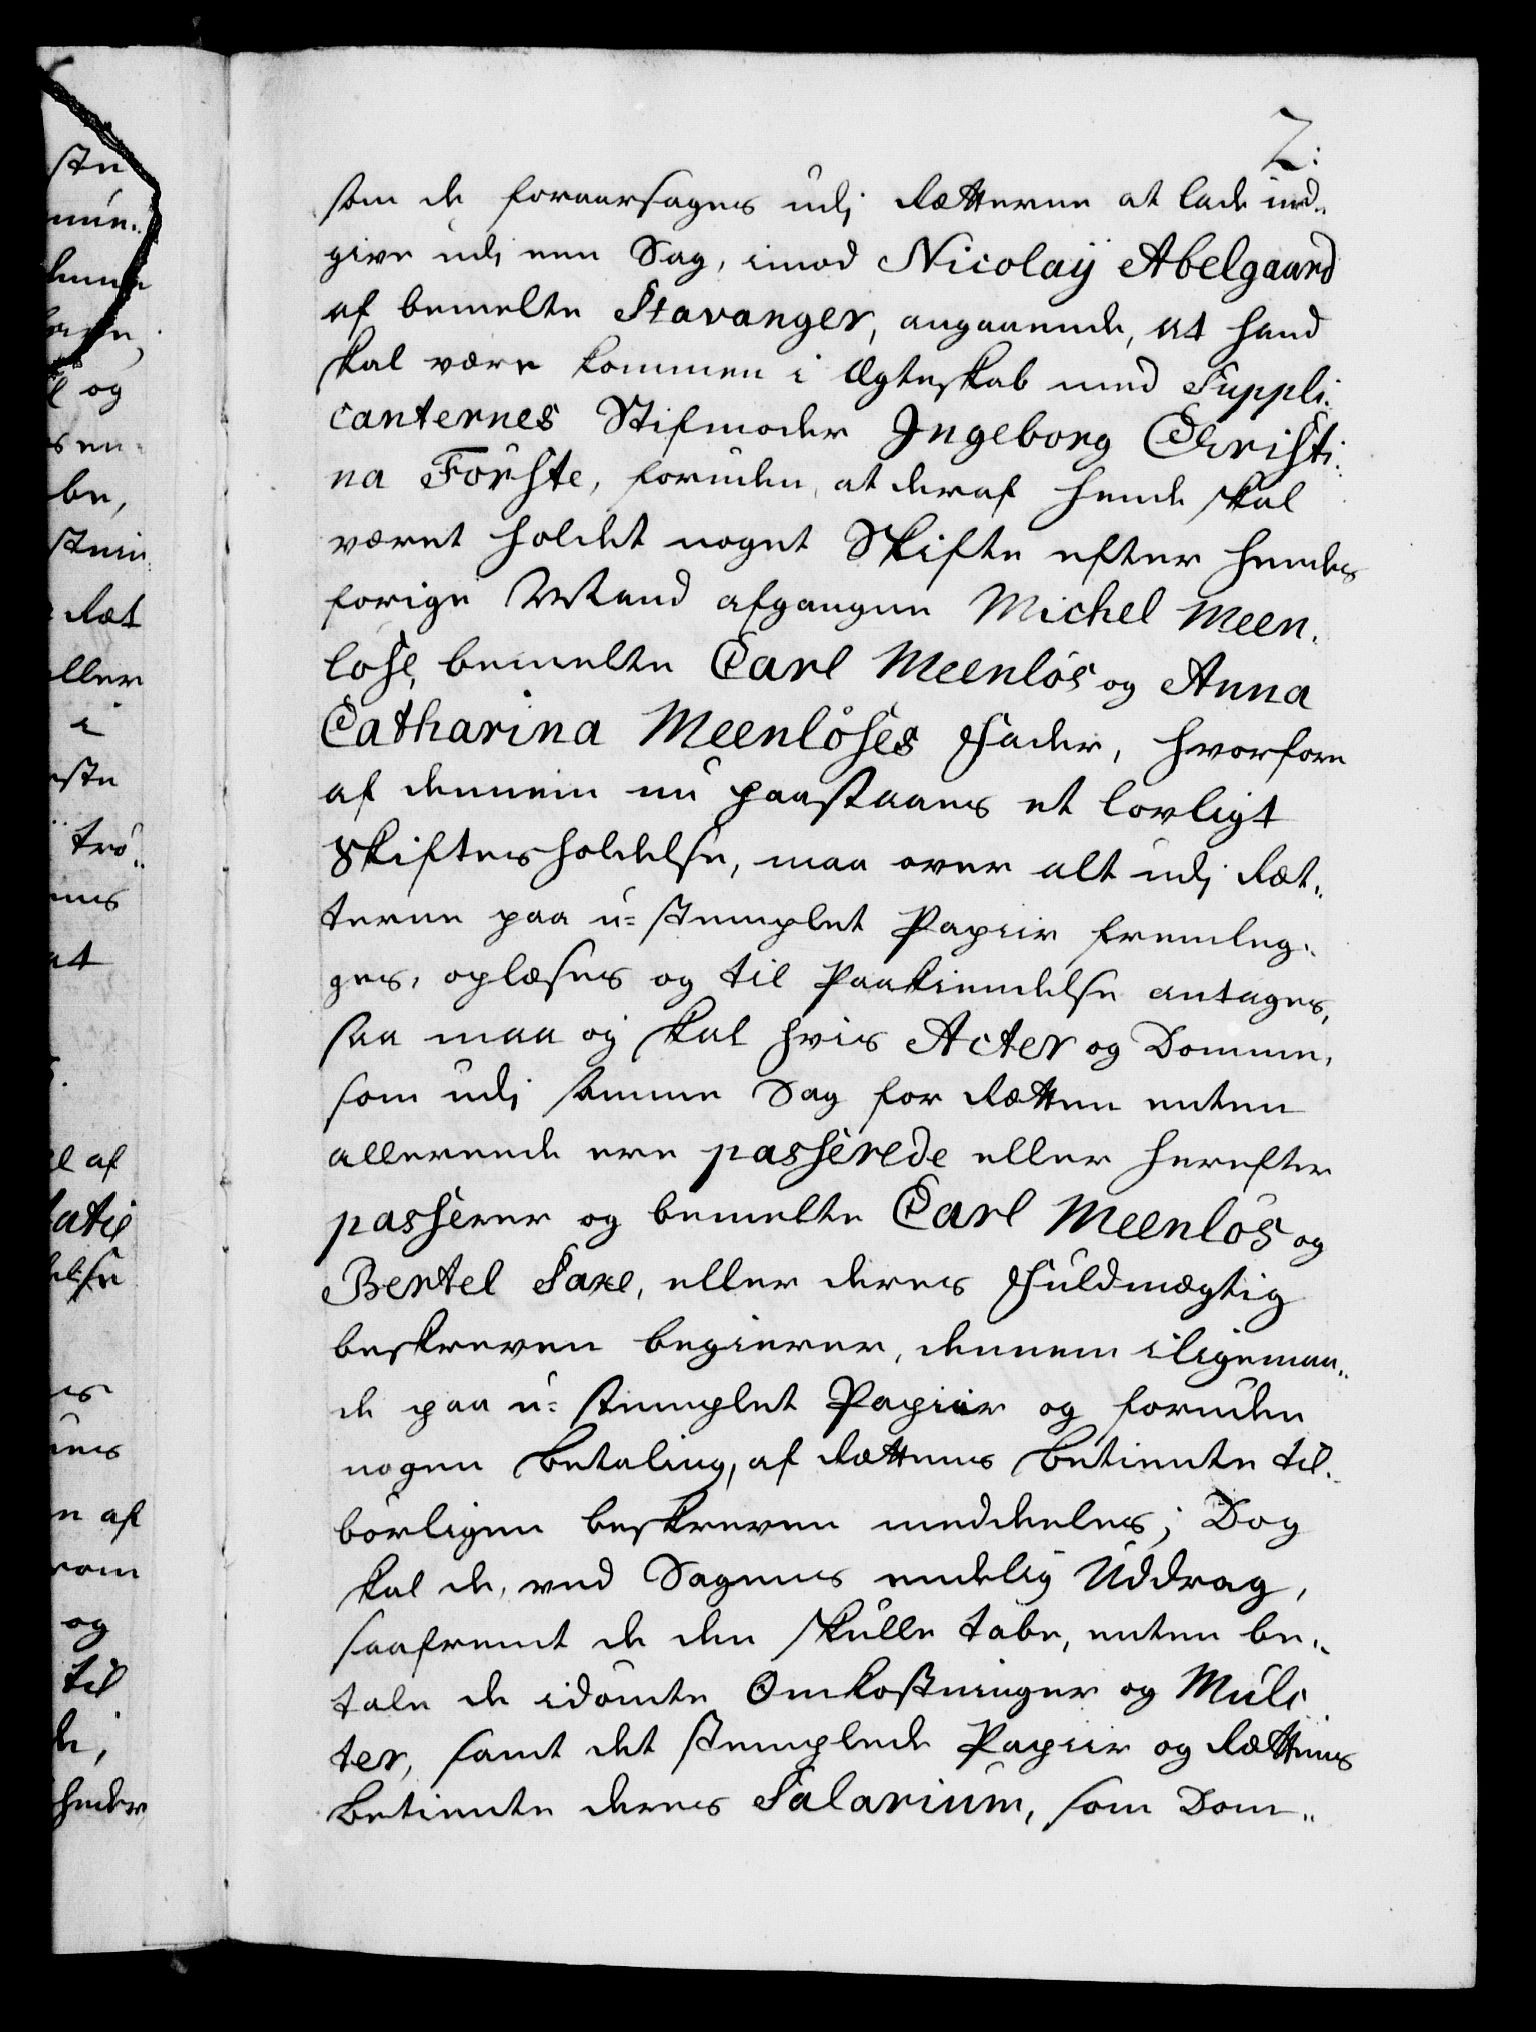 2:
som de foraarsages udj Rætterne at lade ind¬
give udj een Sag, imod Nicolaÿ Abelgaard
af bemelte Stavanger, angaaende, at hand
skal være kommen i Ægteskab med Suppli¬
canternes Stifmoder Ingeborg Christi¬
na Förste, foruden at deraf hende skal
været holdet noget Skifte efter hendes
forige Mand afgangne Michel Meen¬
löse, bemelte Carl Meenlös og Anna
Catharina Meenlöses Fader, hvorfore
af dennem nu paastaaes et lovligt
Skiftes holdelse, maa over alt udj Ræt¬
terne paa u-stemplet Papiir fremleg¬
ges, oplæses og til Paakiendelse antages,
saa maa og skal hvis Acter og Domme,
som udj samme Sag for Rætten enten
allereede ere passerede eller herefter
passerer og bemelte Carl Meenlös og
Bertel Saxe, eller deres Fuldmægtig
beskreven begierer, dennem iligemaa¬
de paa u-stemplet Papiir og foruden
nogen Betaling, af Rættens Betiente til¬
börligen beskreven meddeeles; Dog
skal de, ved Sagens endelig Uddrag,
saafremt de den skulle tabe, enten be¬
tale de idömte Omkostninger og Mulc
ter, samt det stemplede Papiir og Rættens
Betiente deres Salarium, som Dom¬